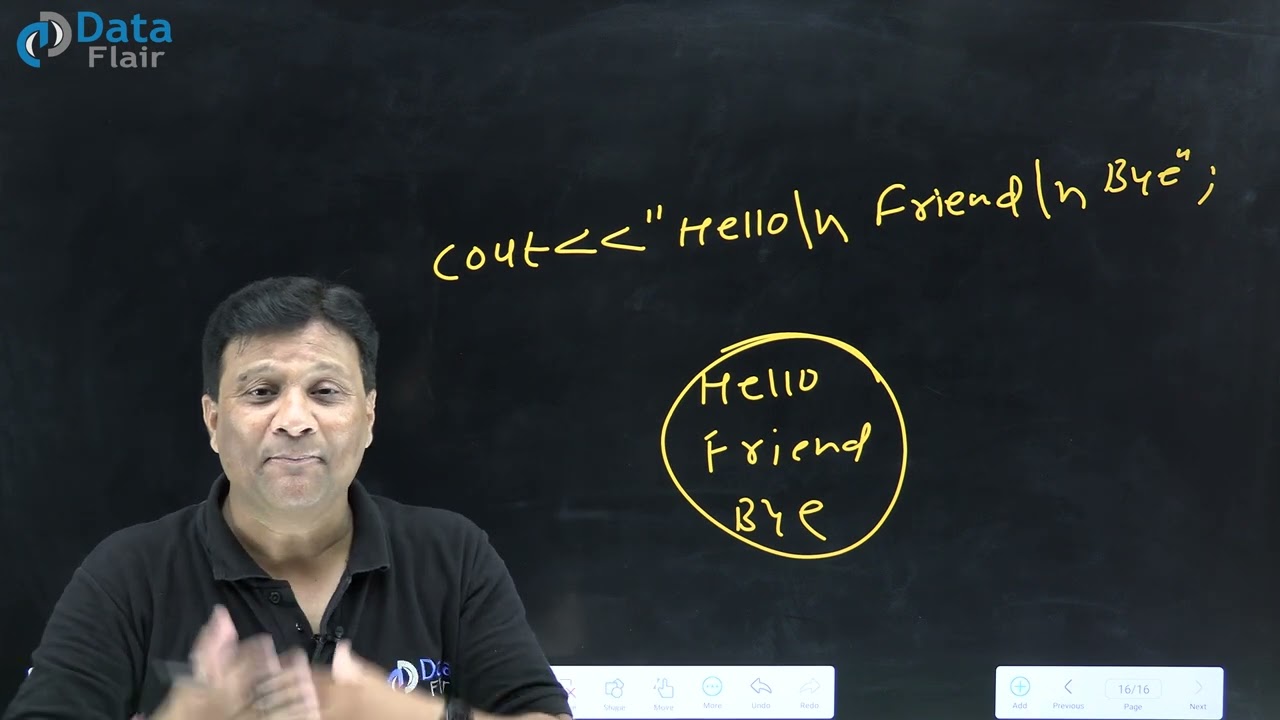 Data
Flair
cout<<"Hello\n Friend\n Bye";
Hello
Friend
Bye
Data
Shape
Move
More
Undo
Redo
Add
Previous
16/16
Page
Next